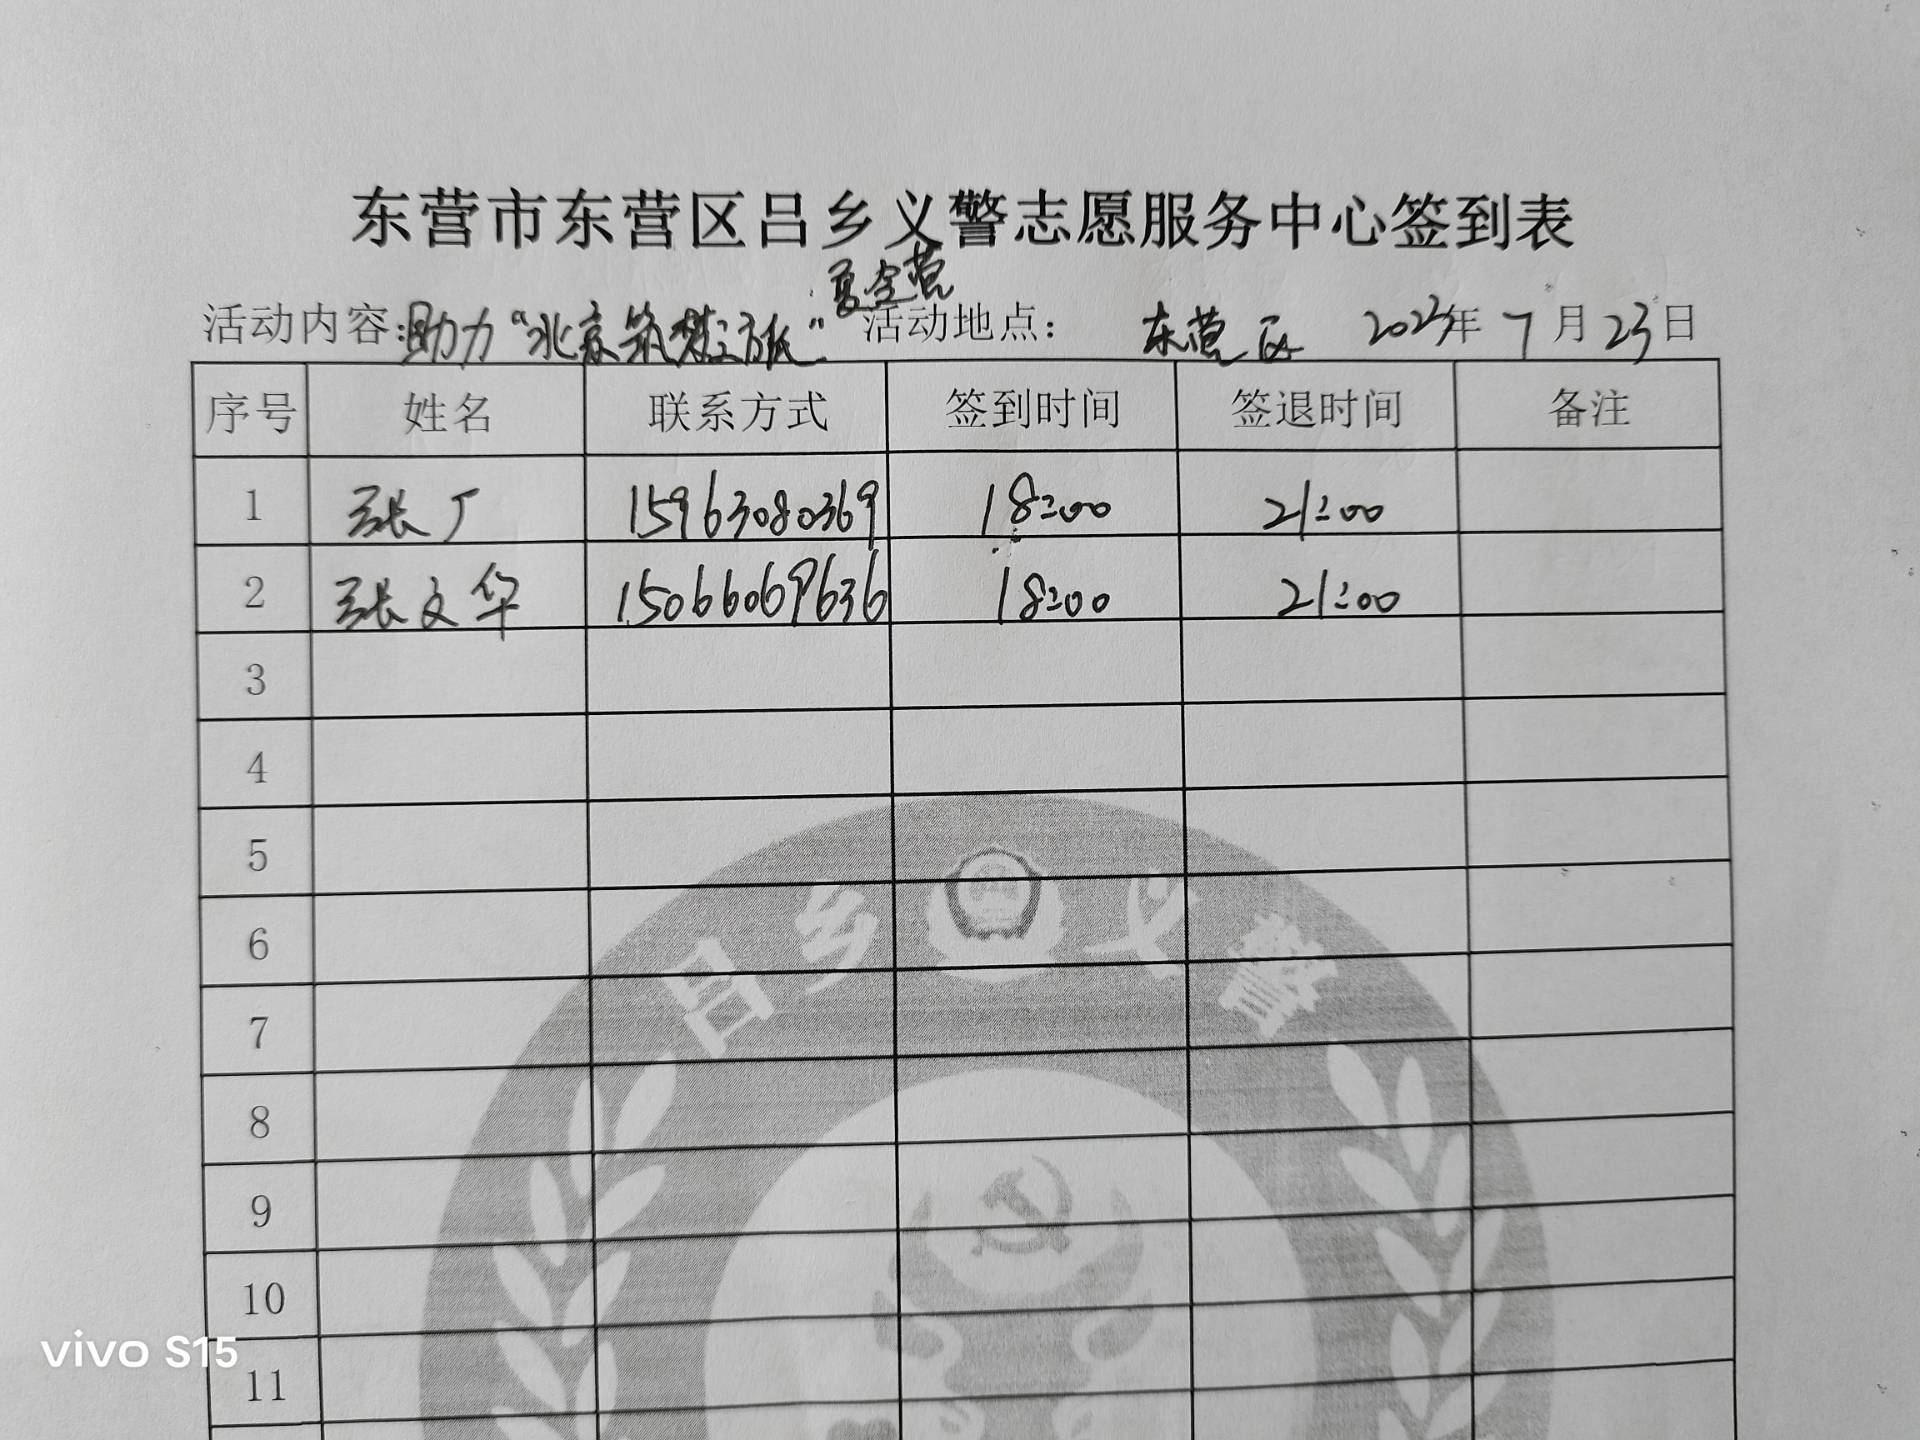 东营市东营区吕乡义警志愿服务中心签到表
夏令营
活动内容:助力“北京筑梦之旅” 活动地点: 东营区 2023年 7月23日
序号 姓名 联系方式 签到时间 签退时间 备注
1 张广 15963080369 18:00 21:00
2 张文华 15066069636 18:00 21:00
3
4
5
6
7
8
9
10
11
吕乡义警
vivo S15